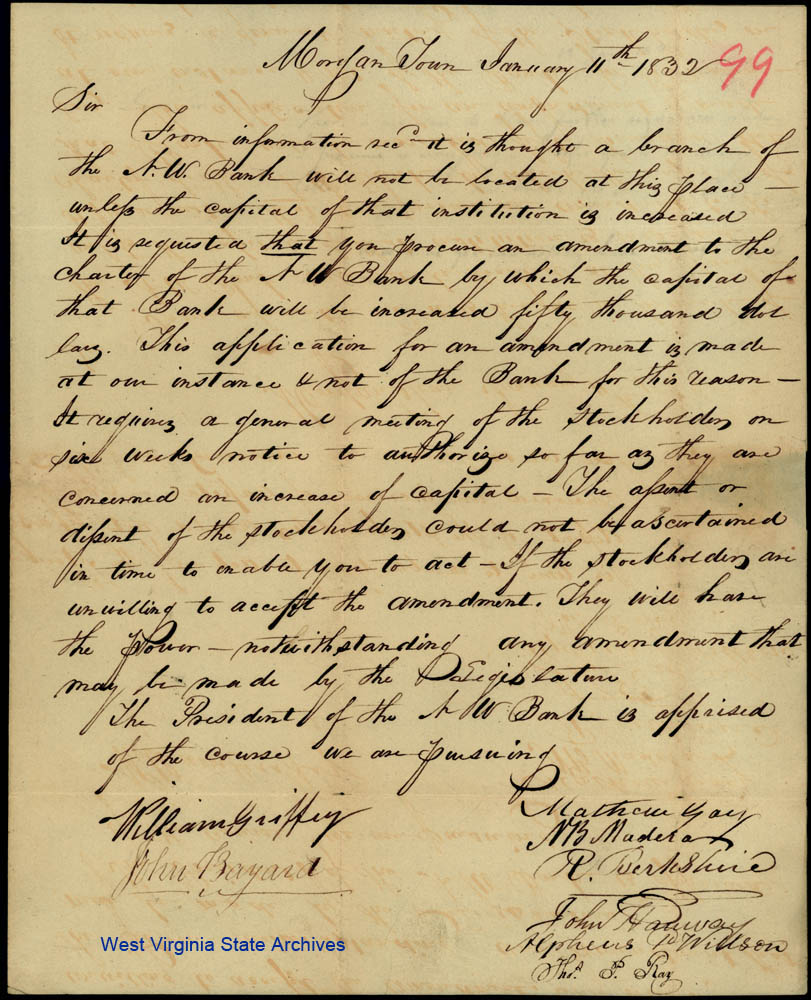 Morgan Town January 11th 1832
99
Sir
From information recd it is thought a branch of
the N.W. Bank will not be located at this place –
unless the capital of that institution is increased
It is requested that you procure an amendment to the
charter of the N W Bank by which the capital of
that Bank will be increased fifty thousand dol
lars. This application for an amendment is made
at our instance & not of the Bank for this reason –
It requires a general meeting of the stockholders on
six weeks notice to authorize so far as they are
concerned an increase of capital – The assent or
dissent of the stockholders could not be ascertained
in time to enable you to act – If the stockholders are
unwilling to accept the amendment. They will have
the power – notwithstanding any amendment that
may be made by the Legislature
The President of the N W. Bank is apprised
of the course we are pursuing
William Griffey
John Bayard
Mathew Gay
N B Madera
R. Berkshire
John Hanway
Alpheus P Willson
Thos. P. Ray
West Virginia State Archives